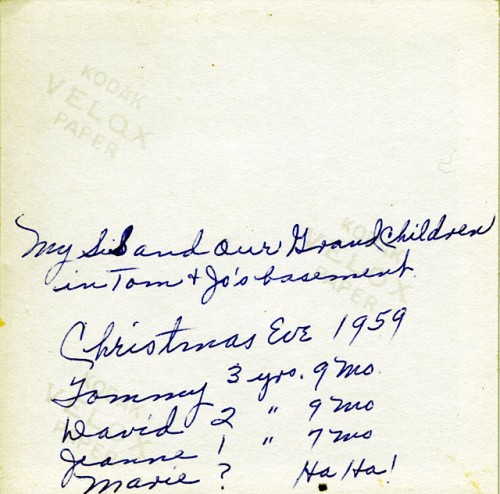 KODAK
VELOX
PAPER
My Sis and Our GrandChildren
in Tom & Jo's basement
KODAK
VELOX
PAPER
Christmas Eve 1959
Tommy 3 yrs. 9 Mo.
David 2 " 9 Mo
Jeanne 1 " 7 Mo
Marie ? Ha Ha!
KODAK
VELOX
PAPER